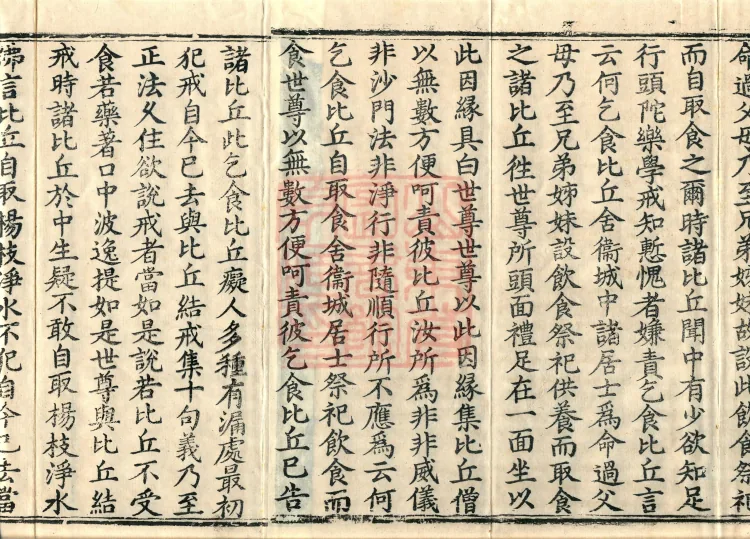 命過父母乃至兄弟姊妹故設此飲食祭祀
而自取食之爾時諸比丘聞中有少欲知足
行頭陀樂學戒知慙愧者嫌責乞食比丘言
云何乞食比丘舍衞城中諸居士為命過父
母乃至兄弟姊妹設飲食祭祀供養而取食
之諸比丘徃世尊所頭面禮足在一面坐以
此因緣具白世尊世尊以此因緣集比丘僧
以無數方便呵責彼比丘汝所為非非威儀
非沙門法非淨行非隨順行所不應為云何
乞食比丘自取食舍衞城居士祭祀飲食而
食世尊以無數方便呵責彼乞食比丘已告
諸比丘此乞食比丘癡人多種有漏處最初
犯戒自今已去與比丘結戒集十句義乃至
正法久住欲說戒者當如是說若比丘不受
食若藥著口中波逸提如是世尊與比丘結
戒時諸比丘於中生疑不敢自取楊枝淨水
佛言比丘自取楊枝淨水不犯自今已去當